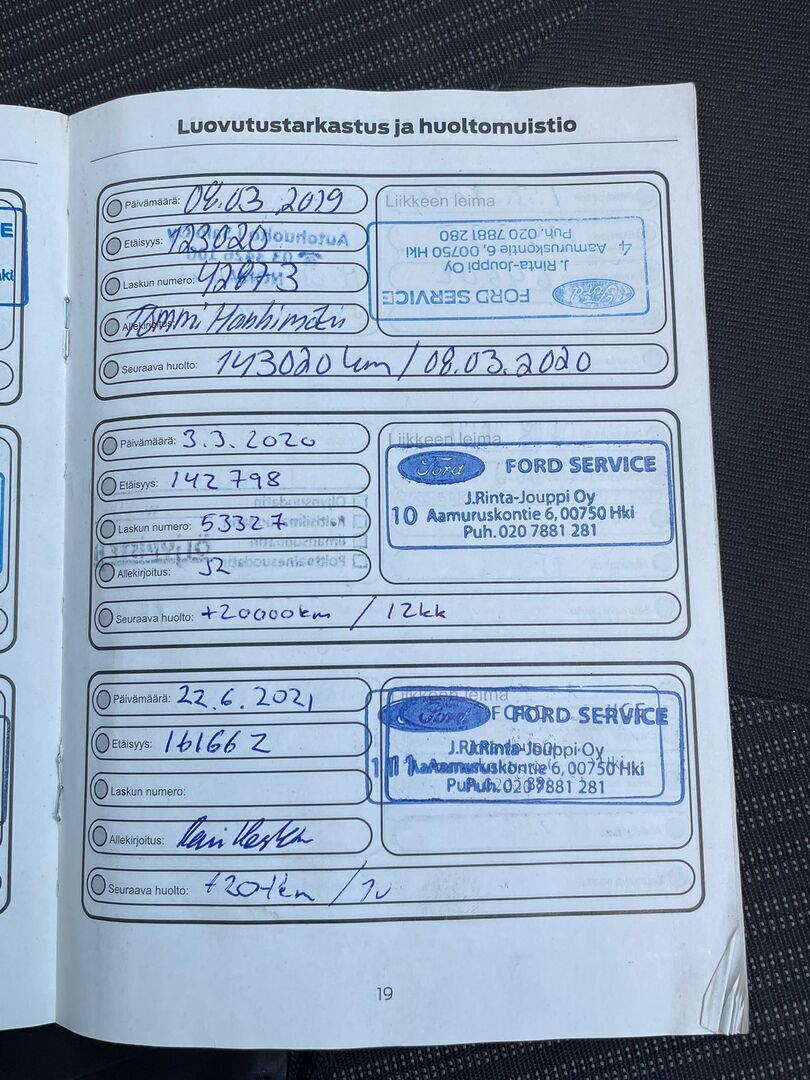 Luovutustarkastus ja huoltomuistio
Päivämäärä: 08.03.2019
Etäisyys: 123020
Laskun numero: 42873
Allekirjoitus: Tommi
Seuraava huolto: 143020 km / 08.03.2020
Liikkeen leima
Ford FORD SERVICE
J.Rinta-Jouppi Oy
4 Aamuruskontie 6, 00750 Hki
Puh. 020 7881 280
Päivämäärä: 3.3.2020
Etäisyys: 142 798
Laskun numero: 53327
Allekirjoitus: JZ
Seuraava huolto: +20000km / 12kk
Liikkeen leima
Ford FORD SERVICE
J.Rinta-Jouppi Oy
10 Aamuruskontie 6, 00750 Hki
Puh. 020 7881 281
Päivämäärä: 22.6.2021
Etäisyys: 161662
Laskun numero:
Allekirjoitus:
Seuraava huolto: +20tkm / 1v
Liikkeen leima
Ford FORD SERVICE
J.Rinta-Jouppi Oy
Aamuruskontie 6, 00750 Hki
Puh. 020 7881 281
19